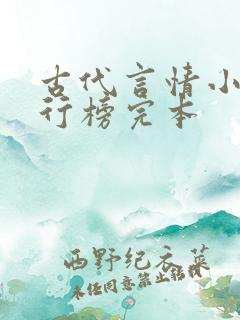 古代言情小
行榜完本
西野纪衣菜
未经同意禁止转载